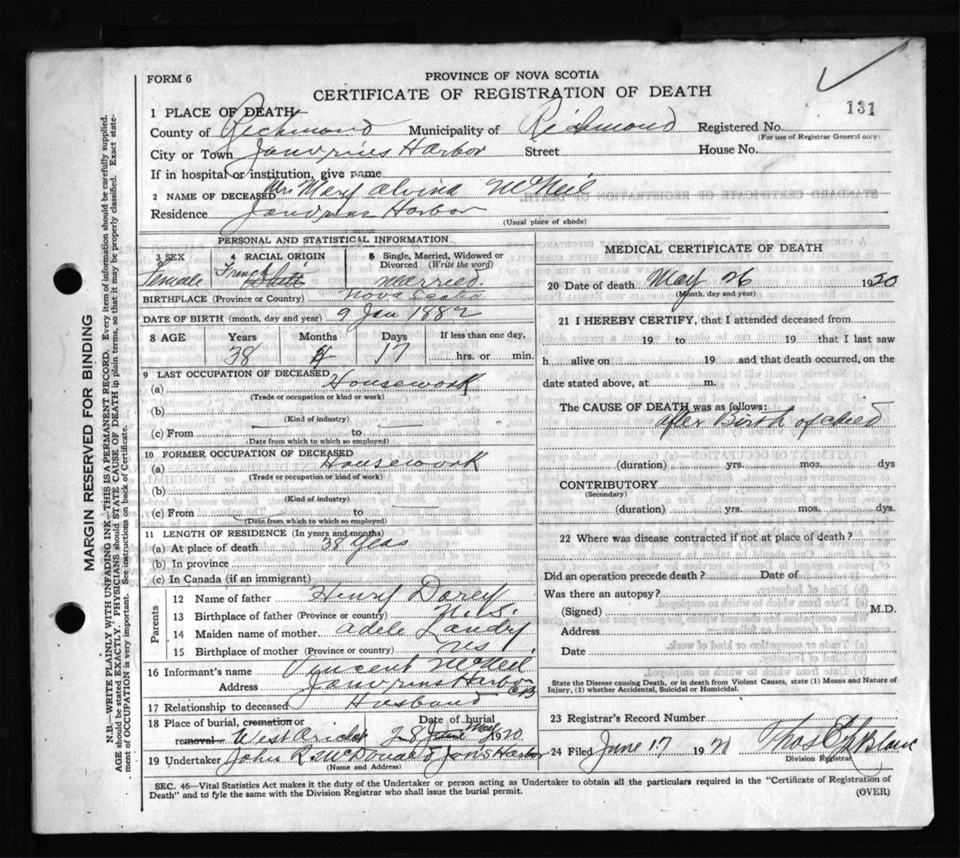 FORM 6
PROVINCE OF NOVA SCOTIA
CERTIFICATE OF REGISTRATION OF DEATH
131
1 PLACE OF DEATH
County of Richmond Municipality of Richmond Registered No.
(For use of Registrar General only)
City or Town Janvrins Harbor Street House No.
If in hospital or institution, give name
2 NAME OF DECEASED Mrs Mery alvina McNeil
Residence Janvrins Harbor
(Usual place of abode)
PERSONAL AND STATISTICAL INFORMATION
3 SEX 4 RACIAL ORIGIN 5 Single, Married, Widowed or Divorced (Write the word)
Female French White married.
BIRTHPLACE (Province or Country) Nova Scotia
DATE OF BIRTH (month, day and year) 9 Jan 1882
8 AGE Years Months Days If less than one day,
38 4 17 hrs. or min.
9 LAST OCCUPATION OF DECEASED
(a) Housework
(Trade or occupation or kind of work)
(b)
(Kind of industry)
(c) From to
(Date from which to which so employed)
10 FORMER OCCUPATION OF DECEASED
(a) Housework
(Trade or occupation or kind of work)
(b)
(Kind of industry)
(c) From to
(Date from which to which so employed)
11 LENGTH OF RESIDENCE (In years and months)
(a) At place of death 38 years
(b) In province
(c) In Canada (if an immigrant)
Parents
12 Name of father Henry Darey
13 Birthplace of father (Province or country) N.S.
14 Maiden name of mother adele Landry
15 Birthplace of mother (Province or country) NS
16 Informant's name Vincent McNeil
Address Janvrins Harbor CB
17 Relationship to deceased Husband
18 Place of burial, cremation or removal Date of burial
West Arichat 28 June May 1920.
19 Undertaker John R. McDonald Jan's Harbor
(Name and Address)
MEDICAL CERTIFICATE OF DEATH
20 Date of death May 26 1920
(Month, day and year)
21 I HEREBY CERTIFY, that I attended deceased from
19 to 19 that I last saw
h alive on 19 and that death occurred, on the
date stated above, at m.
The CAUSE OF DEATH was as follows:
after Birth of child
(duration) yrs. mos. dys
CONTRIBUTORY
(Secondary)
(duration) yrs. mos. dys.
22 Where was disease contracted if not at place of death?
Did an operation precede death? Date of
Was there an autopsy?
(Signed) M.D.
Address
Date
State the Disease causing Death, or in death from Violent Causes, state (1) Means and Nature of
Injury, (2) whether Accidental, Suicidal or Homicidal.
23 Registrar's Record Number
24 Filed June 17 1921 Thos LeBlanc
Division Registrar
SEC. 46—Vital Statistics Act makes it the duty of the Undertaker or person acting as Undertaker to obtain all the particulars required in the "Certificate of Registration of
Death" and to fyle the same with the Division Registrar who shall issue the burial permit.
(OVER)
MARGIN RESERVED FOR BINDING
N.B.—WRITE PLAINLY WITH UNFADING INK—THIS IS A PERMANENT RECORD. Every item of information should be carefully supplied.
AGE should be stated EXACTLY. PHYSICIANS should STATE CAUSE OF DEATH in plain terms, so that it may be properly classified. Exact statement of OCCUPATION is very important. See instructions on back of Certificate.